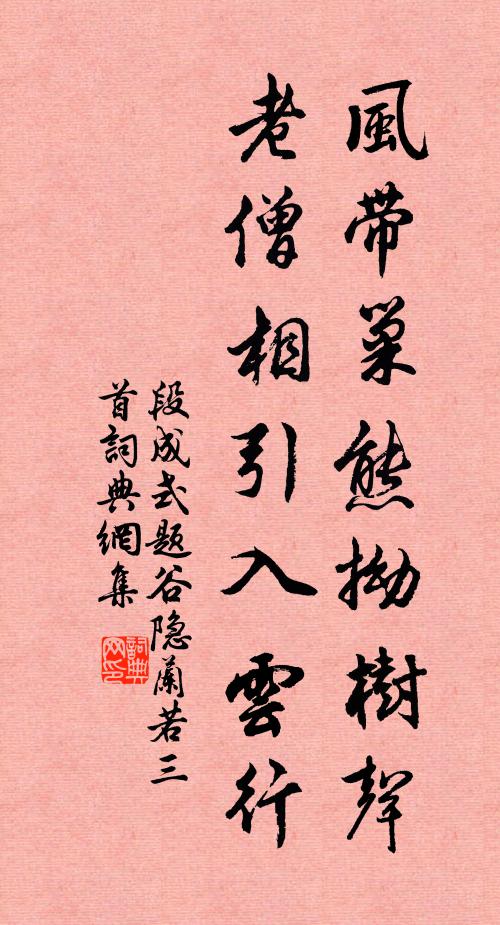 風帶巢熊拗樹聲
老僧相引入雲行
段成式题谷隐蘭若三
首詞典網集
詞典网印